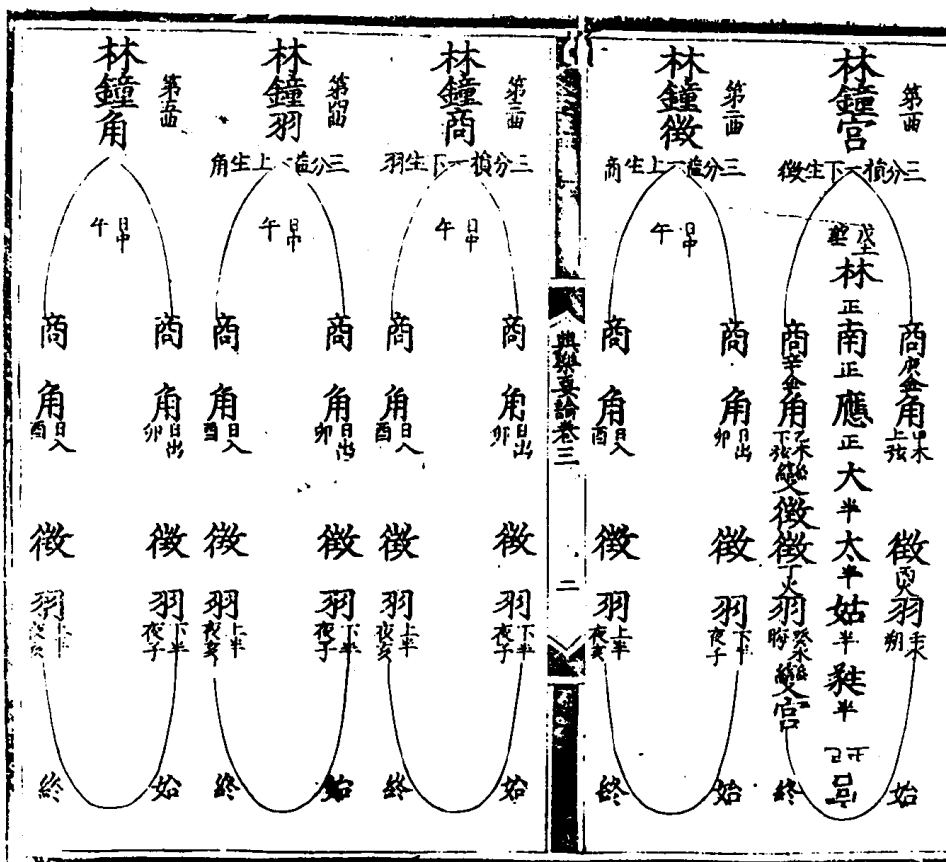 林鐘宮
第一曲
三分損一下生徵
戊土
林正
南正
應正
大半
太半
姑半
蕤半
商庚金
角甲木上弦
徵丙火
羽壬水朔
始
商辛金
角乙木下弦
變徵
徵丁火
羽癸水
變宮
終
林鐘徵
第二曲
三分益一上生商
日中午
商
角日出卯
徵
羽下半夜子
始
商
角日入酉
徵
羽上半夜亥
終
卷三
二
林鐘商
第三曲
三分損一下生羽
日中午
商
角日出卯
徵
羽下半夜子
始
商
角日入酉
徵
羽上半夜亥
終
林鐘羽
第四曲
三分益一上生角
日中午
商
角日出卯
徵
羽下半夜子
始
商
角日入酉
徵
羽上半夜亥
終
林鐘角
第五曲
日中午
商
角日出卯
徵
羽下半夜子
始
商
角日入酉
徵
羽上半夜亥
終